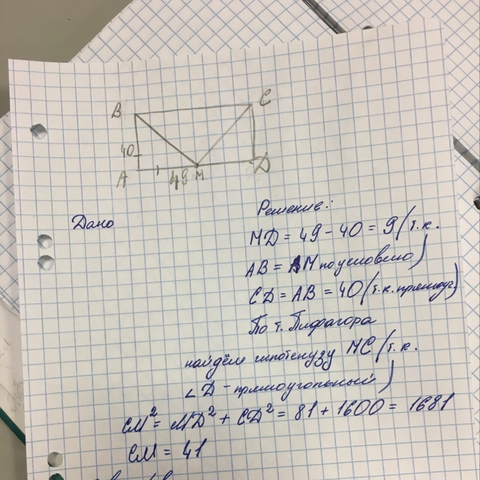 B C
40
A 49 M D
Дано
Решение:
MD = 49 - 40 = 9 (т.к.
AB = AM по условию)
CD = AB = 40 (т.к. прямоуг)
По т. Пифагора
найдём гипотенузу MC (т.к.
∠D - прямоугольный)
CM² = MD² + CD² = 81 + 1600 = 1681
CM = 41